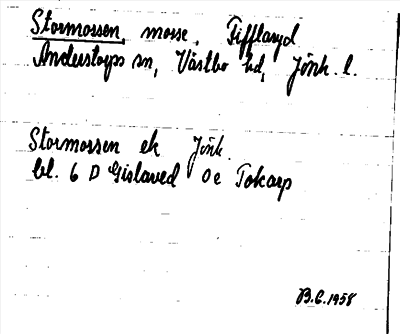 Stormossen, mosse, Fifflaryd
Anderstorps sn, Västbo hd, Jönk. l.
Stormossen ek Jönk.
bl. 6 D Gislaved 0 e Tokarp
B.E. 1958